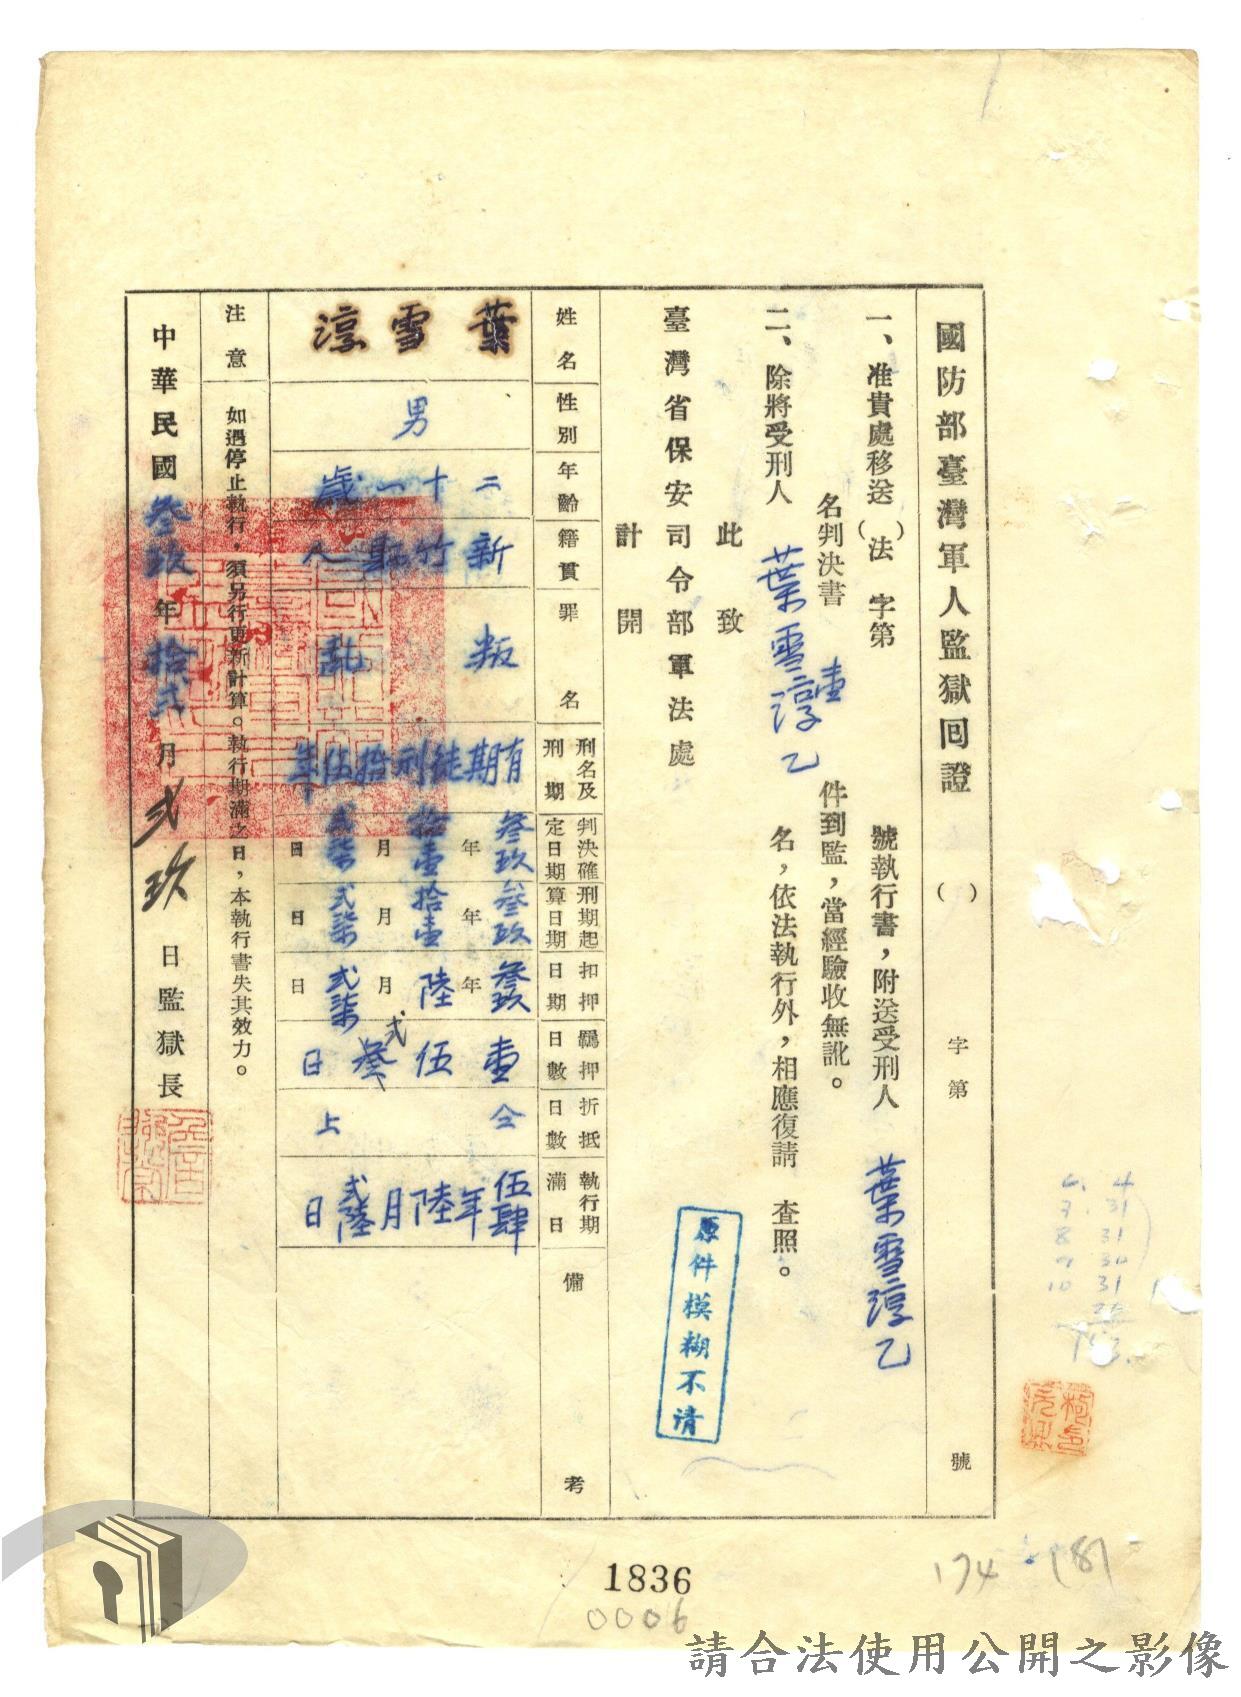 國防部臺灣軍人監獄回證　（　）字第　號
一、准貴處移送（法）字第　號執行書，附送受刑人葉雪淳乙
名判決書壹件到監，當經驗收無訛。
二、除將受刑人葉雪淳乙名，依法執行外，相應復請　查照。
此致
臺灣省保安司令部軍法處
計開
姓名　葉雪淳
性別　男
年齡　二十一歲
籍貫　新竹縣人
罪名　叛亂
刑名及刑期　有期徒刑拾伍年
判決確定日期　叁玖年拾壹月貳柒日
刑期起算日期　叁玖年拾壹月弍柒日
扣押日期　叁玖年陸月弍柒日
羈押日數　壹伍叁弍日
折抵日數　仝上
執行期滿日　伍肆年陸月弍陸日
備考
注意　如遇停止執行，須另行更新計算。執行期滿之日，本執行書失其效力。
中華民國叁玖年拾弍月弍玖日監獄長
原件模糊不清
7 31
8 31
9 30
10 31
174
181
1836
0006
請合法使用公開之影像